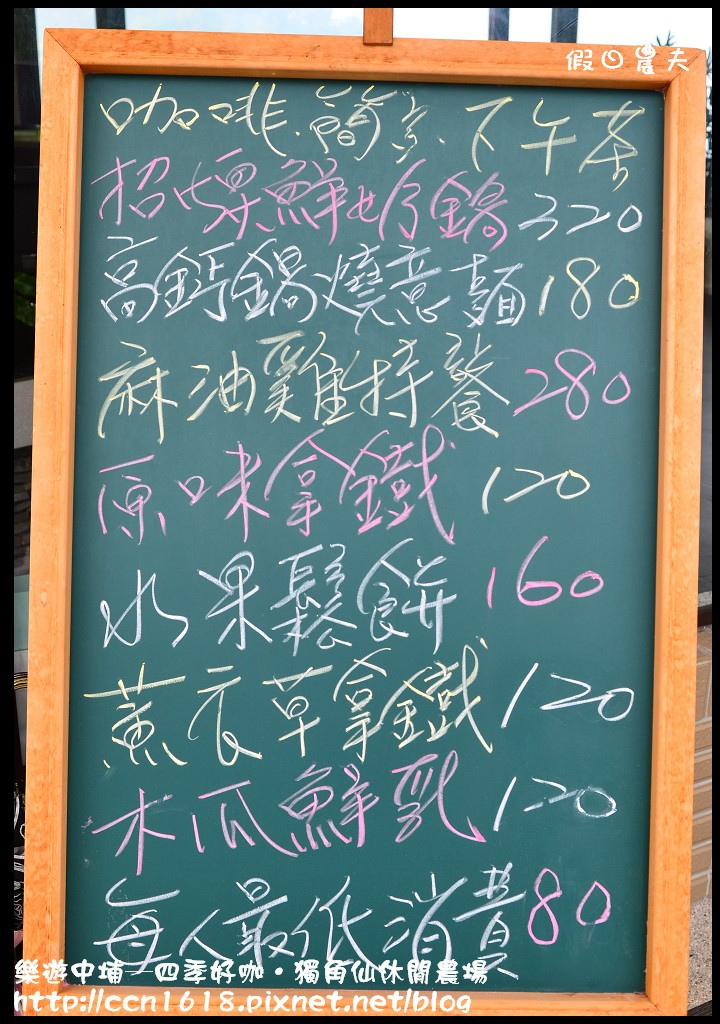 假日農夫
咖啡.簡餐.下午茶
招牌鮮奶鍋 320
高鈣鍋燒意麵 180
麻油雞特餐 280
原味拿鐵 120
水果鬆餅 160
薰衣草拿鐵 120
木瓜鮮乳 120
每人最低消費 80
樂遊中埔—四季好咖·獨角仙休閒農場
http://ccn1618.pixnet.net/blog